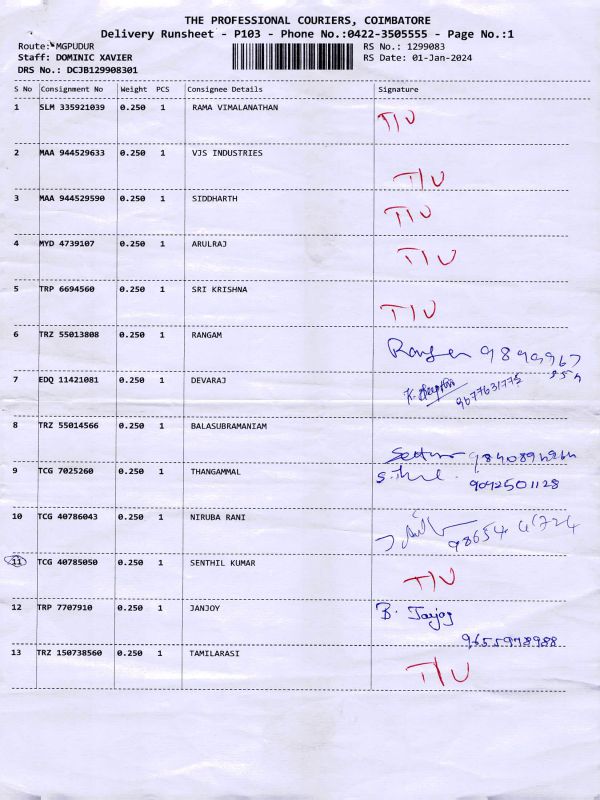 THE PROFESSIONAL COURIERS, COIMBATORE
Delivery Runsheet - P103 - Phone No.:0422-3505555 - Page No.:1
Route: MGPUDUR RS No.: 1299083
Staff: DOMINIC XAVIER RS Date: 01-Jan-2024
DRS No.: DCJB129908301
S No Consignment No Weight PCS Consignee Details Signature
1 SLM 335921039 0.250 1 RAMA VIMALANATHAN T/U
2 MAA 944529633 0.250 1 VJS INDUSTRIES T/U
3 MAA 944529590 0.250 1 SIDDHARTH T/U
4 MYD 4739107 0.250 1 ARULRAJ T/U
5 TRP 6694560 0.250 1 SRI KRISHNA T/U
6 TRZ 55013808 0.250 1 RANGAM
7 EDQ 11421081 0.250 1 DEVARAJ 9677631775
8 TRZ 55014566 0.250 1 BALASUBRAMANIAM
9 TCG 7025260 0.250 1 THANGAMMAL 9092501128
10 TCG 40786043 0.250 1 NIRUBA RANI
11 TCG 40785050 0.250 1 SENTHIL KUMAR T/U
12 TRP 7707910 0.250 1 JANJOY B. Janjoy
9655978988
13 TRZ 150738560 0.250 1 TAMILARASI T/U